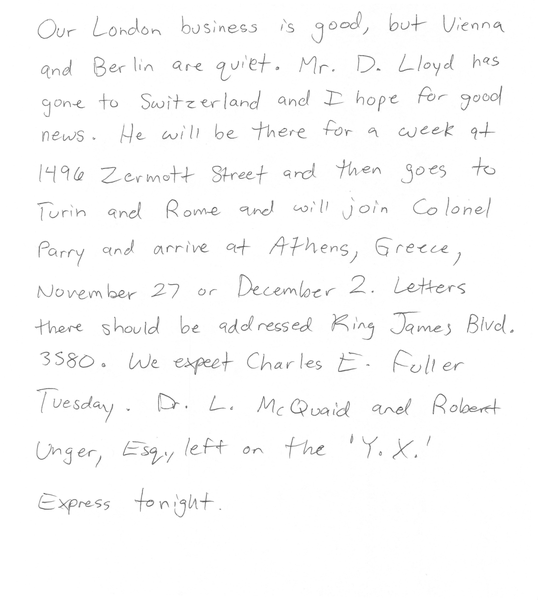 Our London business is good, but Vienna
and Berlin are quiet. Mr. D. Lloyd has
gone to Switzerland and I hope for good
news. He will be there for a week at
1496 Zermott Street and then goes to
Turin and Rome and will join Colonel
Parry and arrive at Athens, Greece,
November 27 or December 2. Letters
there should be addressed King James Blvd.
3580. We expect Charles E. Fuller
Tuesday. Dr. L. McQuaid and Robert
Unger, Esq., left on the 'Y.X.'
Express tonight.